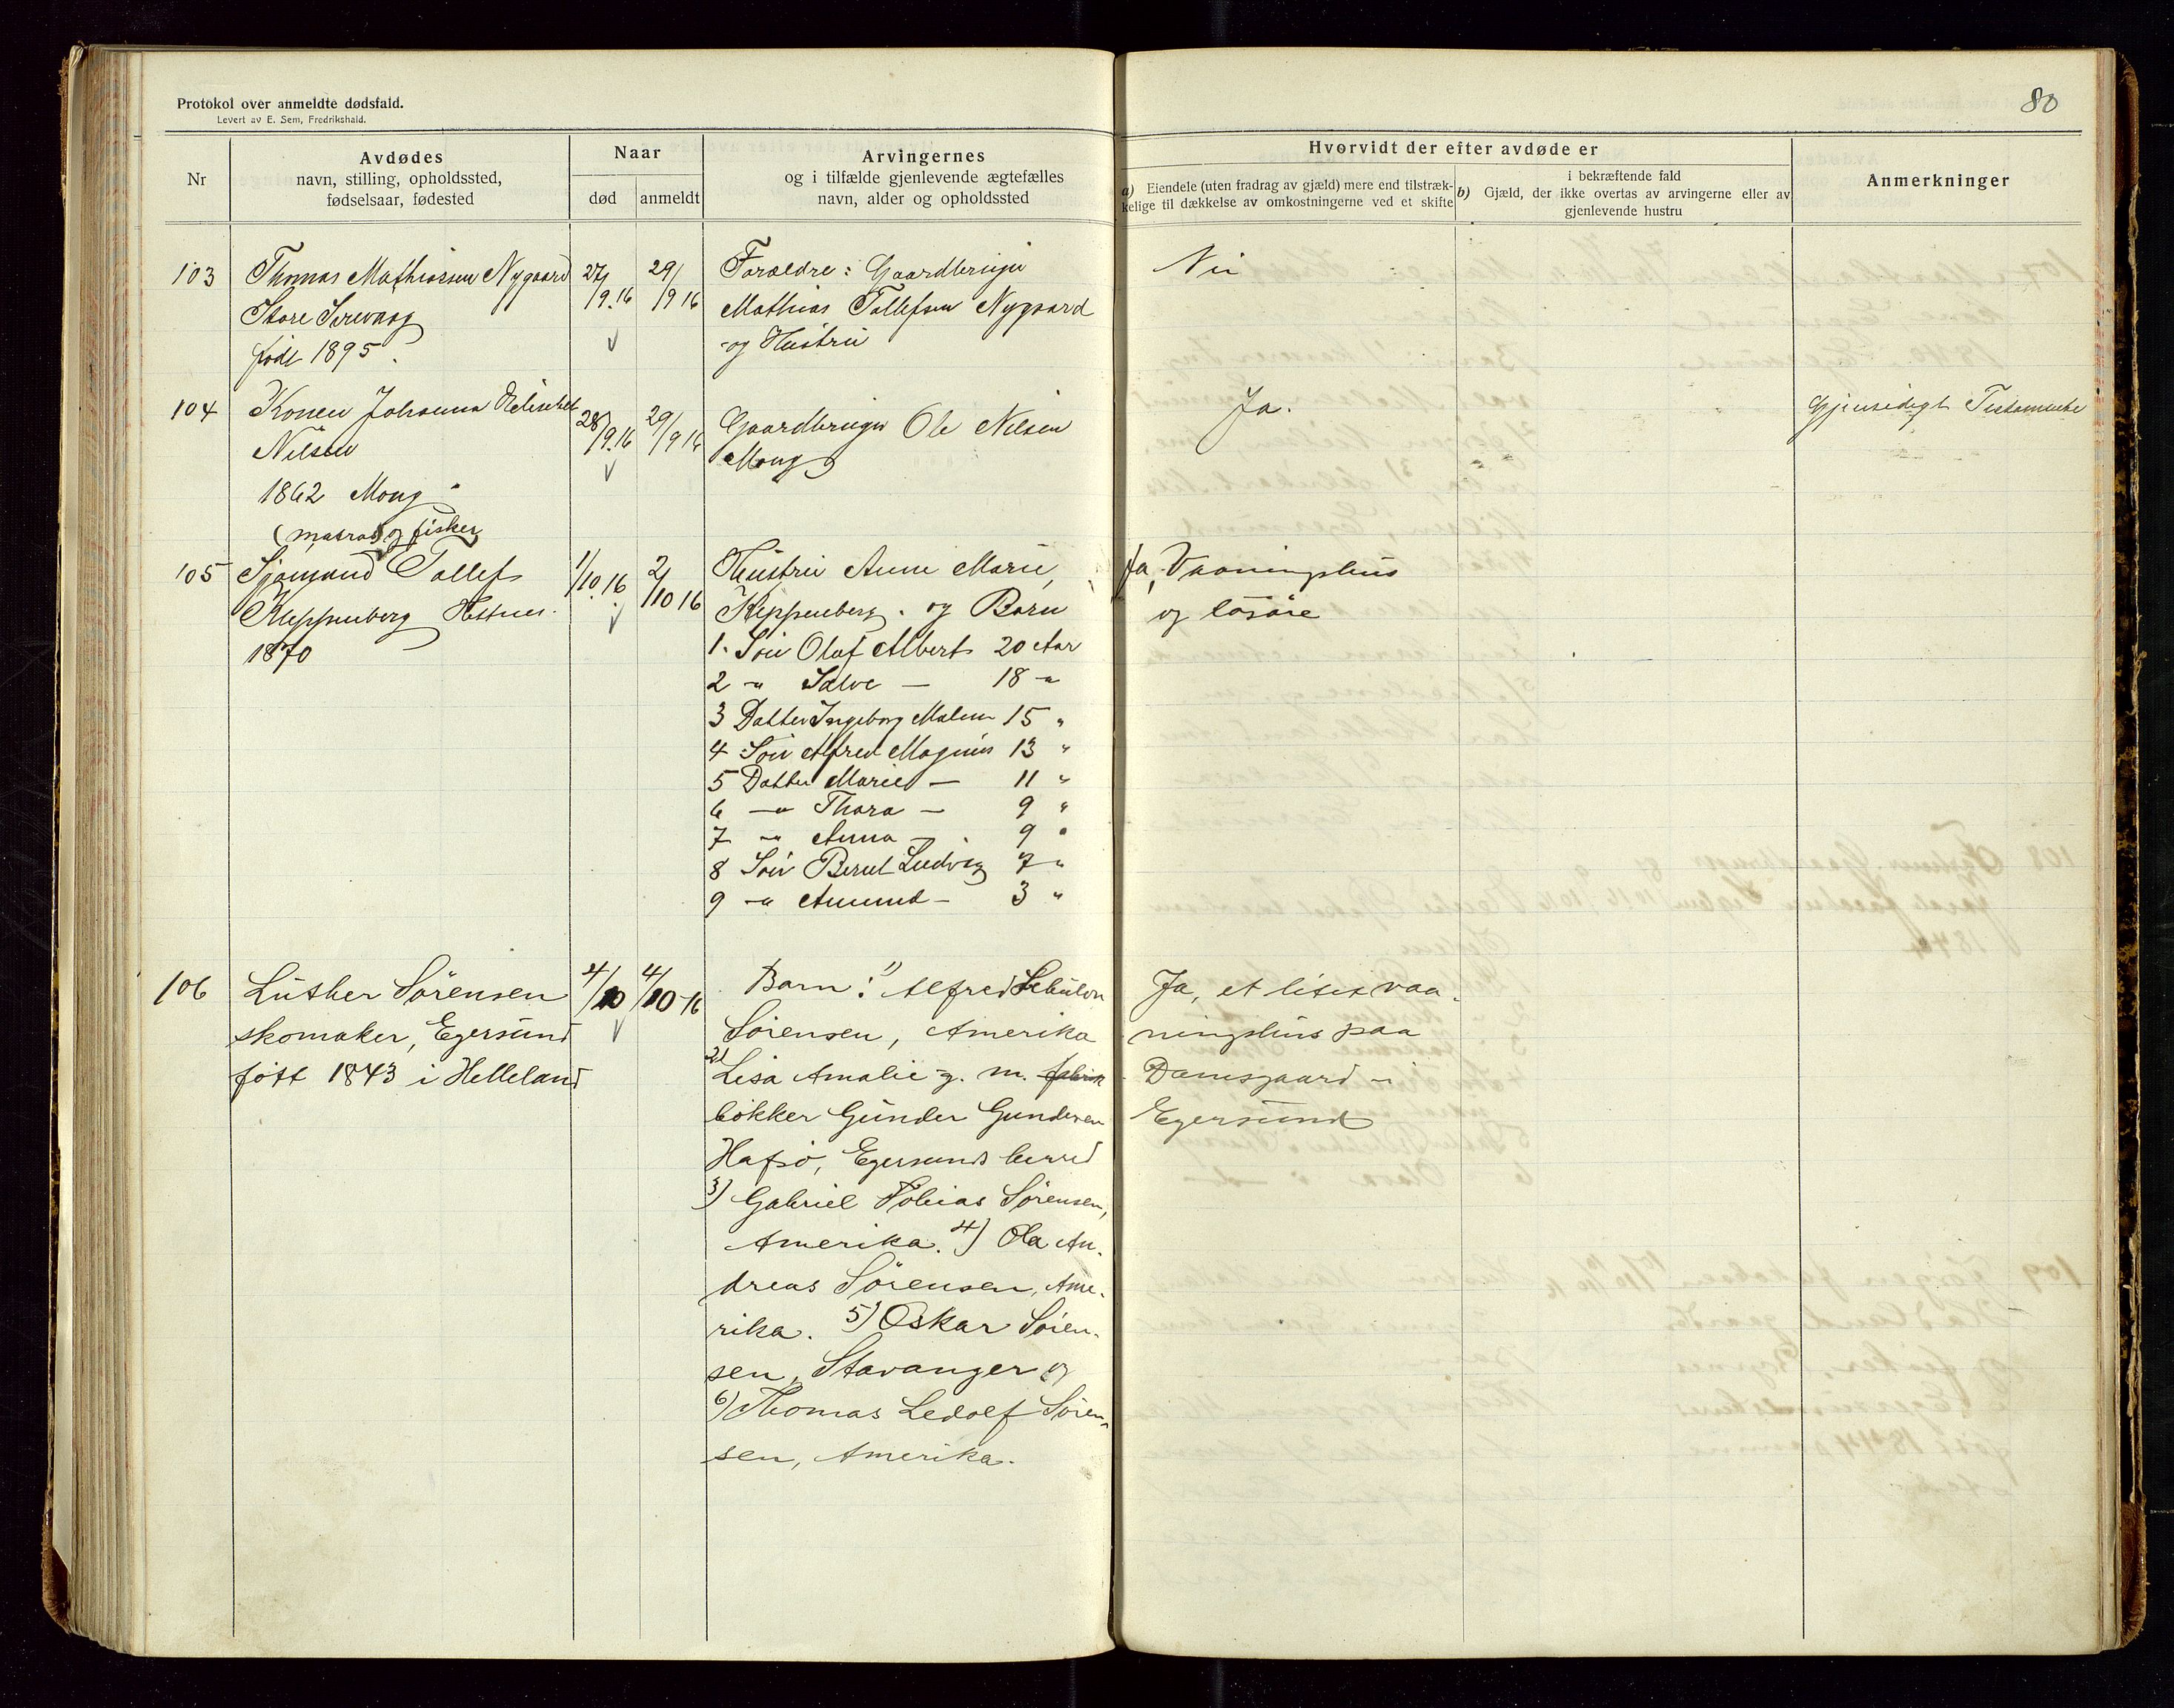 Protokol over anmeldte dødsfald.
Levert av E. Sem, Fredrikshald.
80
Nr
Avdødes
navn, stilling, opholdssted,
fødselsaar, fødested
Naar
død
anmeldt
Arvingernes
og i tilfælde gjenlevende ægtefælles
navn, alder og opholdssted
Hvorvidt der efter avdøde er
a) Eiendele (uten fradrag av gjæld) mere end tilstræk-
kelige til dækkelse av omkostningerne ved et skifte
i bekræftende fald
b) Gjæld, der ikke overtas av arvingerne eller av
gjenlevende hustru
Anmerkninger
103
Thomas Mathiassen Nygaard
Store Sirevaag
født 1895.
27/9.16
29/9 16
Forældre: Gaardbruger
Mathias Tollefsen Nygaard
og Hustru
Nei
104
Konen Johanna Elisabet
Nilsen
1862 Mong
28/9.16
29/9 16
Gaardbruger Ole Nilsen
Mong
Ja.
Gjensidigt Testamente
(matros og fisker)
105
Sjømand Tollef
Kleppenberg Hestnes.
1870
1/10.16
2/10 16
Hustru Anne Marie
Kleppenberg. og Børn
1. Søn Olaf Albert 20 Aar
2 -"- Salve - 18 -"
3 Datter Ingeborg Malene 15 "
4 Søn Alfred Magnus 13 "
5 Datter Marie - 11 "
6 -"- Thora - 9 "
7 -"- Anna - 9 "
8 Søn Berent Ludvig 7 "
9 -"- Amund - 3 "
Ja, Vaaningshus
og løsøre
106
Luther Sørensen
skomaker, Egersund
født 1843 i Helleland
4/10
4/10-16
Barn: 1) Alfred Sebulon
Sørensen, Amerika
2) Lisa Amalie g. m. fabrik
bøkker Gunder Gundersen
Hafsø, Egersunds herred
3) Gabriel Tobias Sørensen,
Amerika. 4) Ola An-
dreas Sørensen, Ame-
rika. 5) Oskar Søren-
sen, Stavanger og
6) Thomas Ledolf Søren-
sen, Amerika.
Ja, et litet vaa-
ningshus paa
Damsgaard i
Egersund